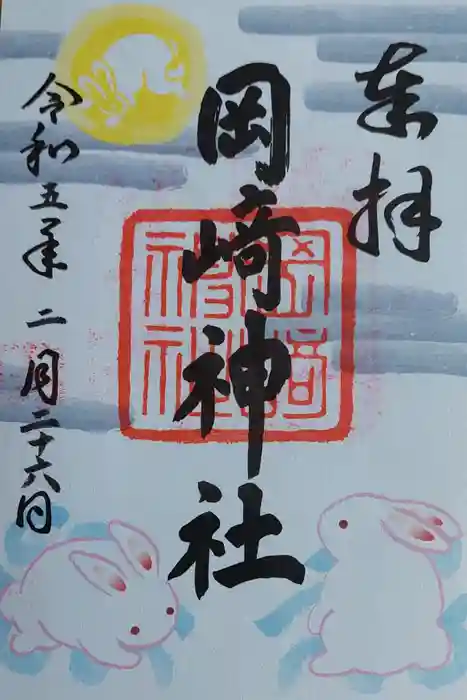 奉拝
岡崎神社
令和五年 二月二十六日
岡崎神社